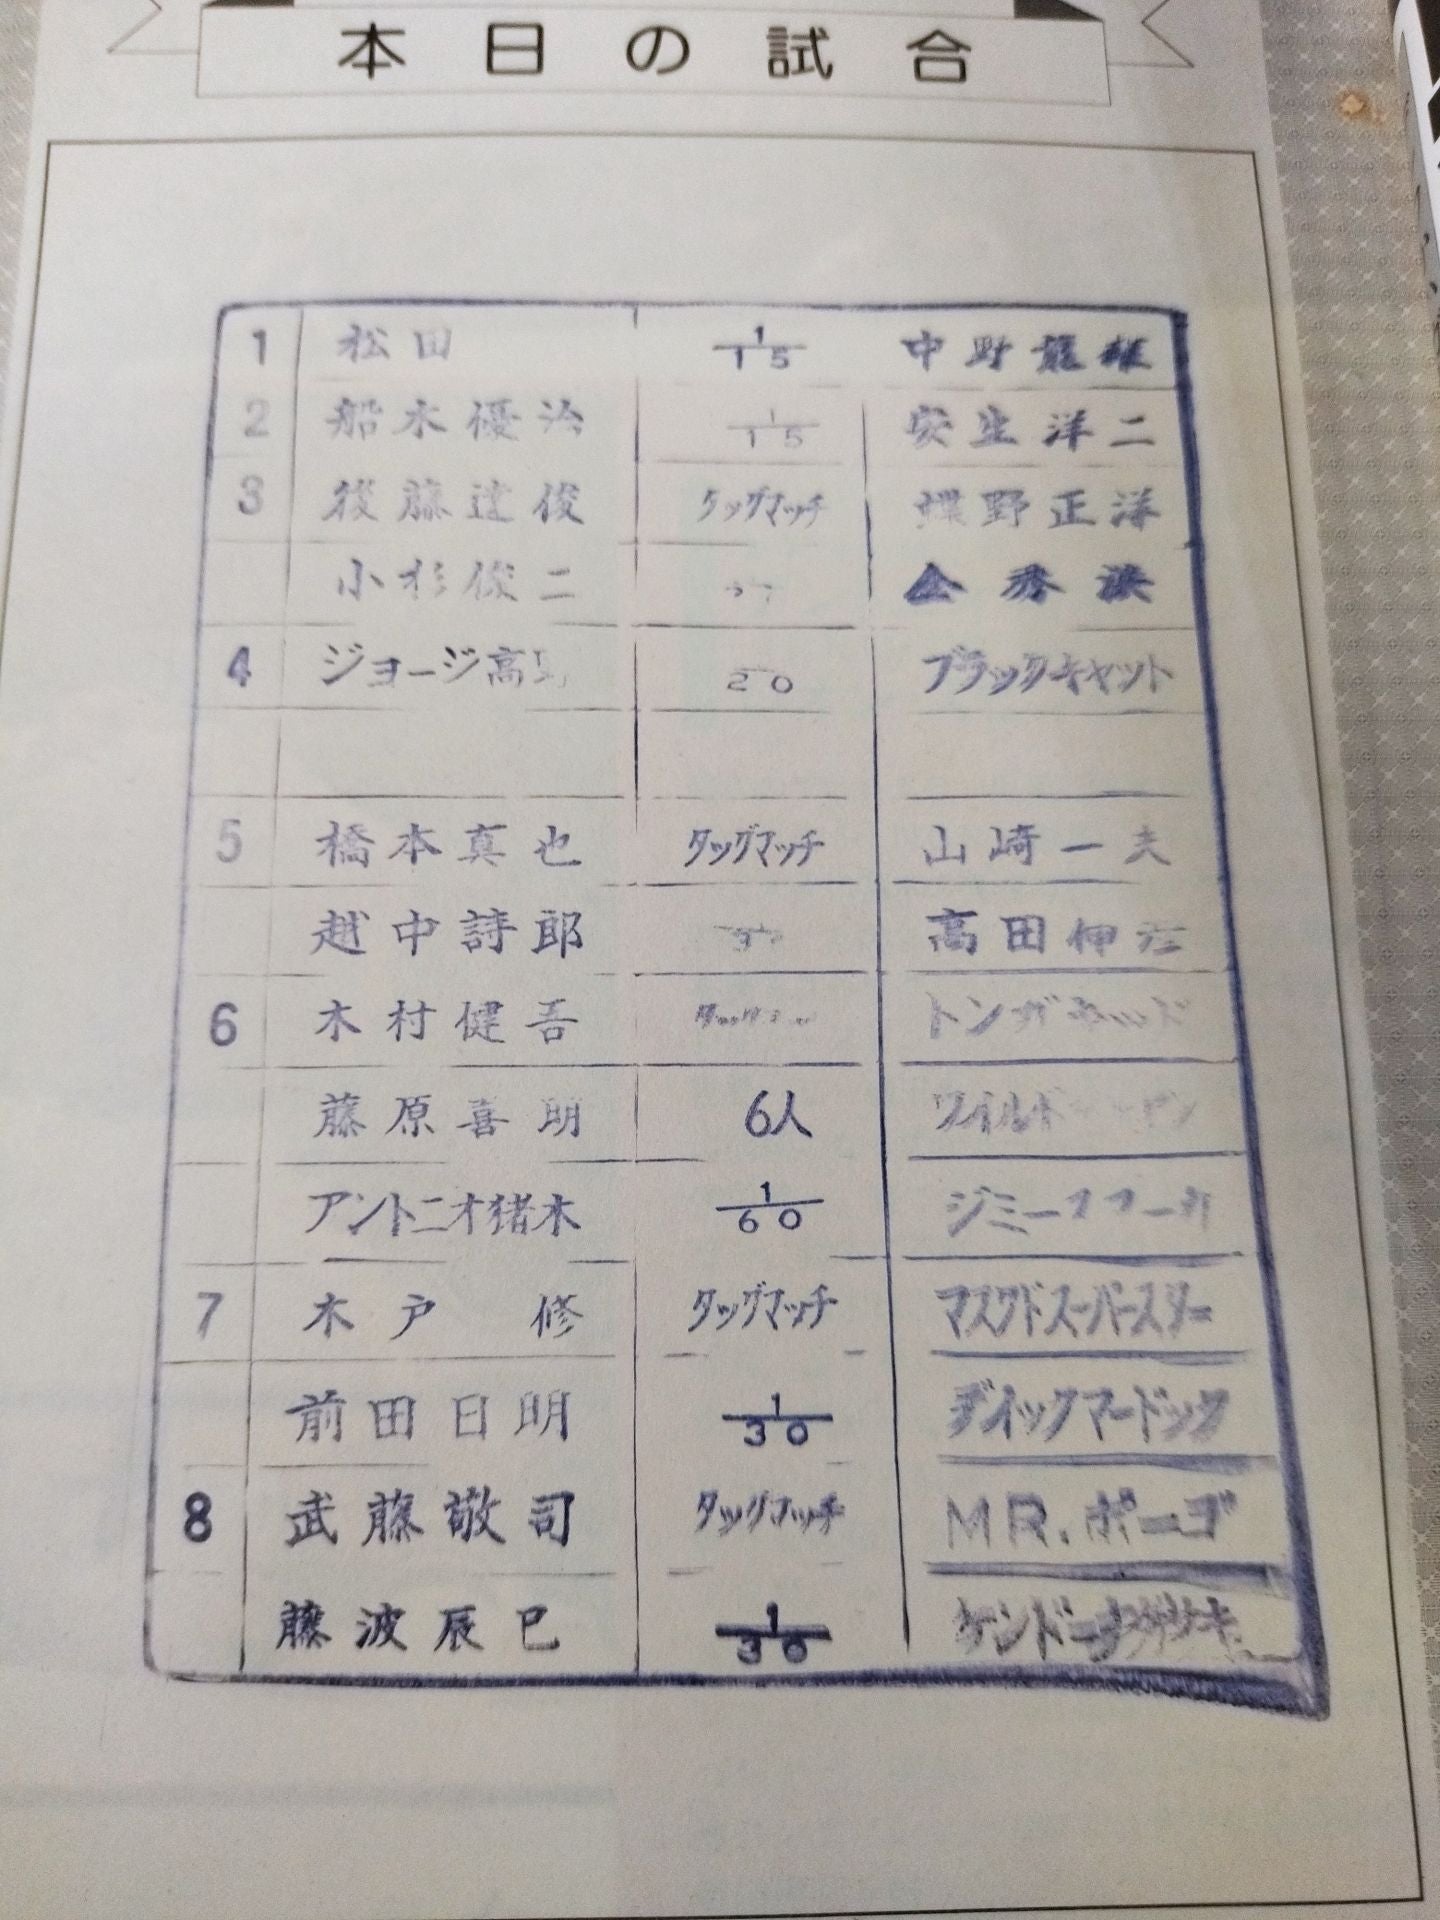 本日の試合
1 松田 1/15 中野龍雄
2 船木優治 1/15 安生洋二
3 後藤達俊 タッグマッチ 蝶野正洋
小杉俊二 金秀洪
4 ジョージ高野 20 ブラックキャット
5 橋本真也 タッグマッチ 山崎一夫
越中詩郎 高田伸彦
6 木村健吾 トンガ
藤原喜明 6人 ワイルド
アントニオ猪木 1/60 ジミー
7 木戸 修 タッグマッチ マスクドスーパースター
前田日明 1/30 ディックマードック
8 武藤敬司 タッグマッチ MR.ポーゴ
藤波辰巳 1/30 ケンドーナガサキ